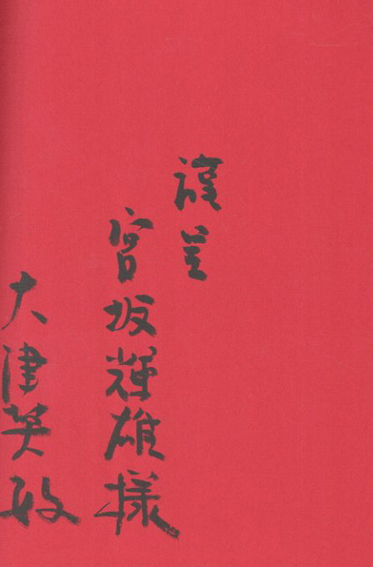 謹呈
宮坂輝雄様
大津英敏